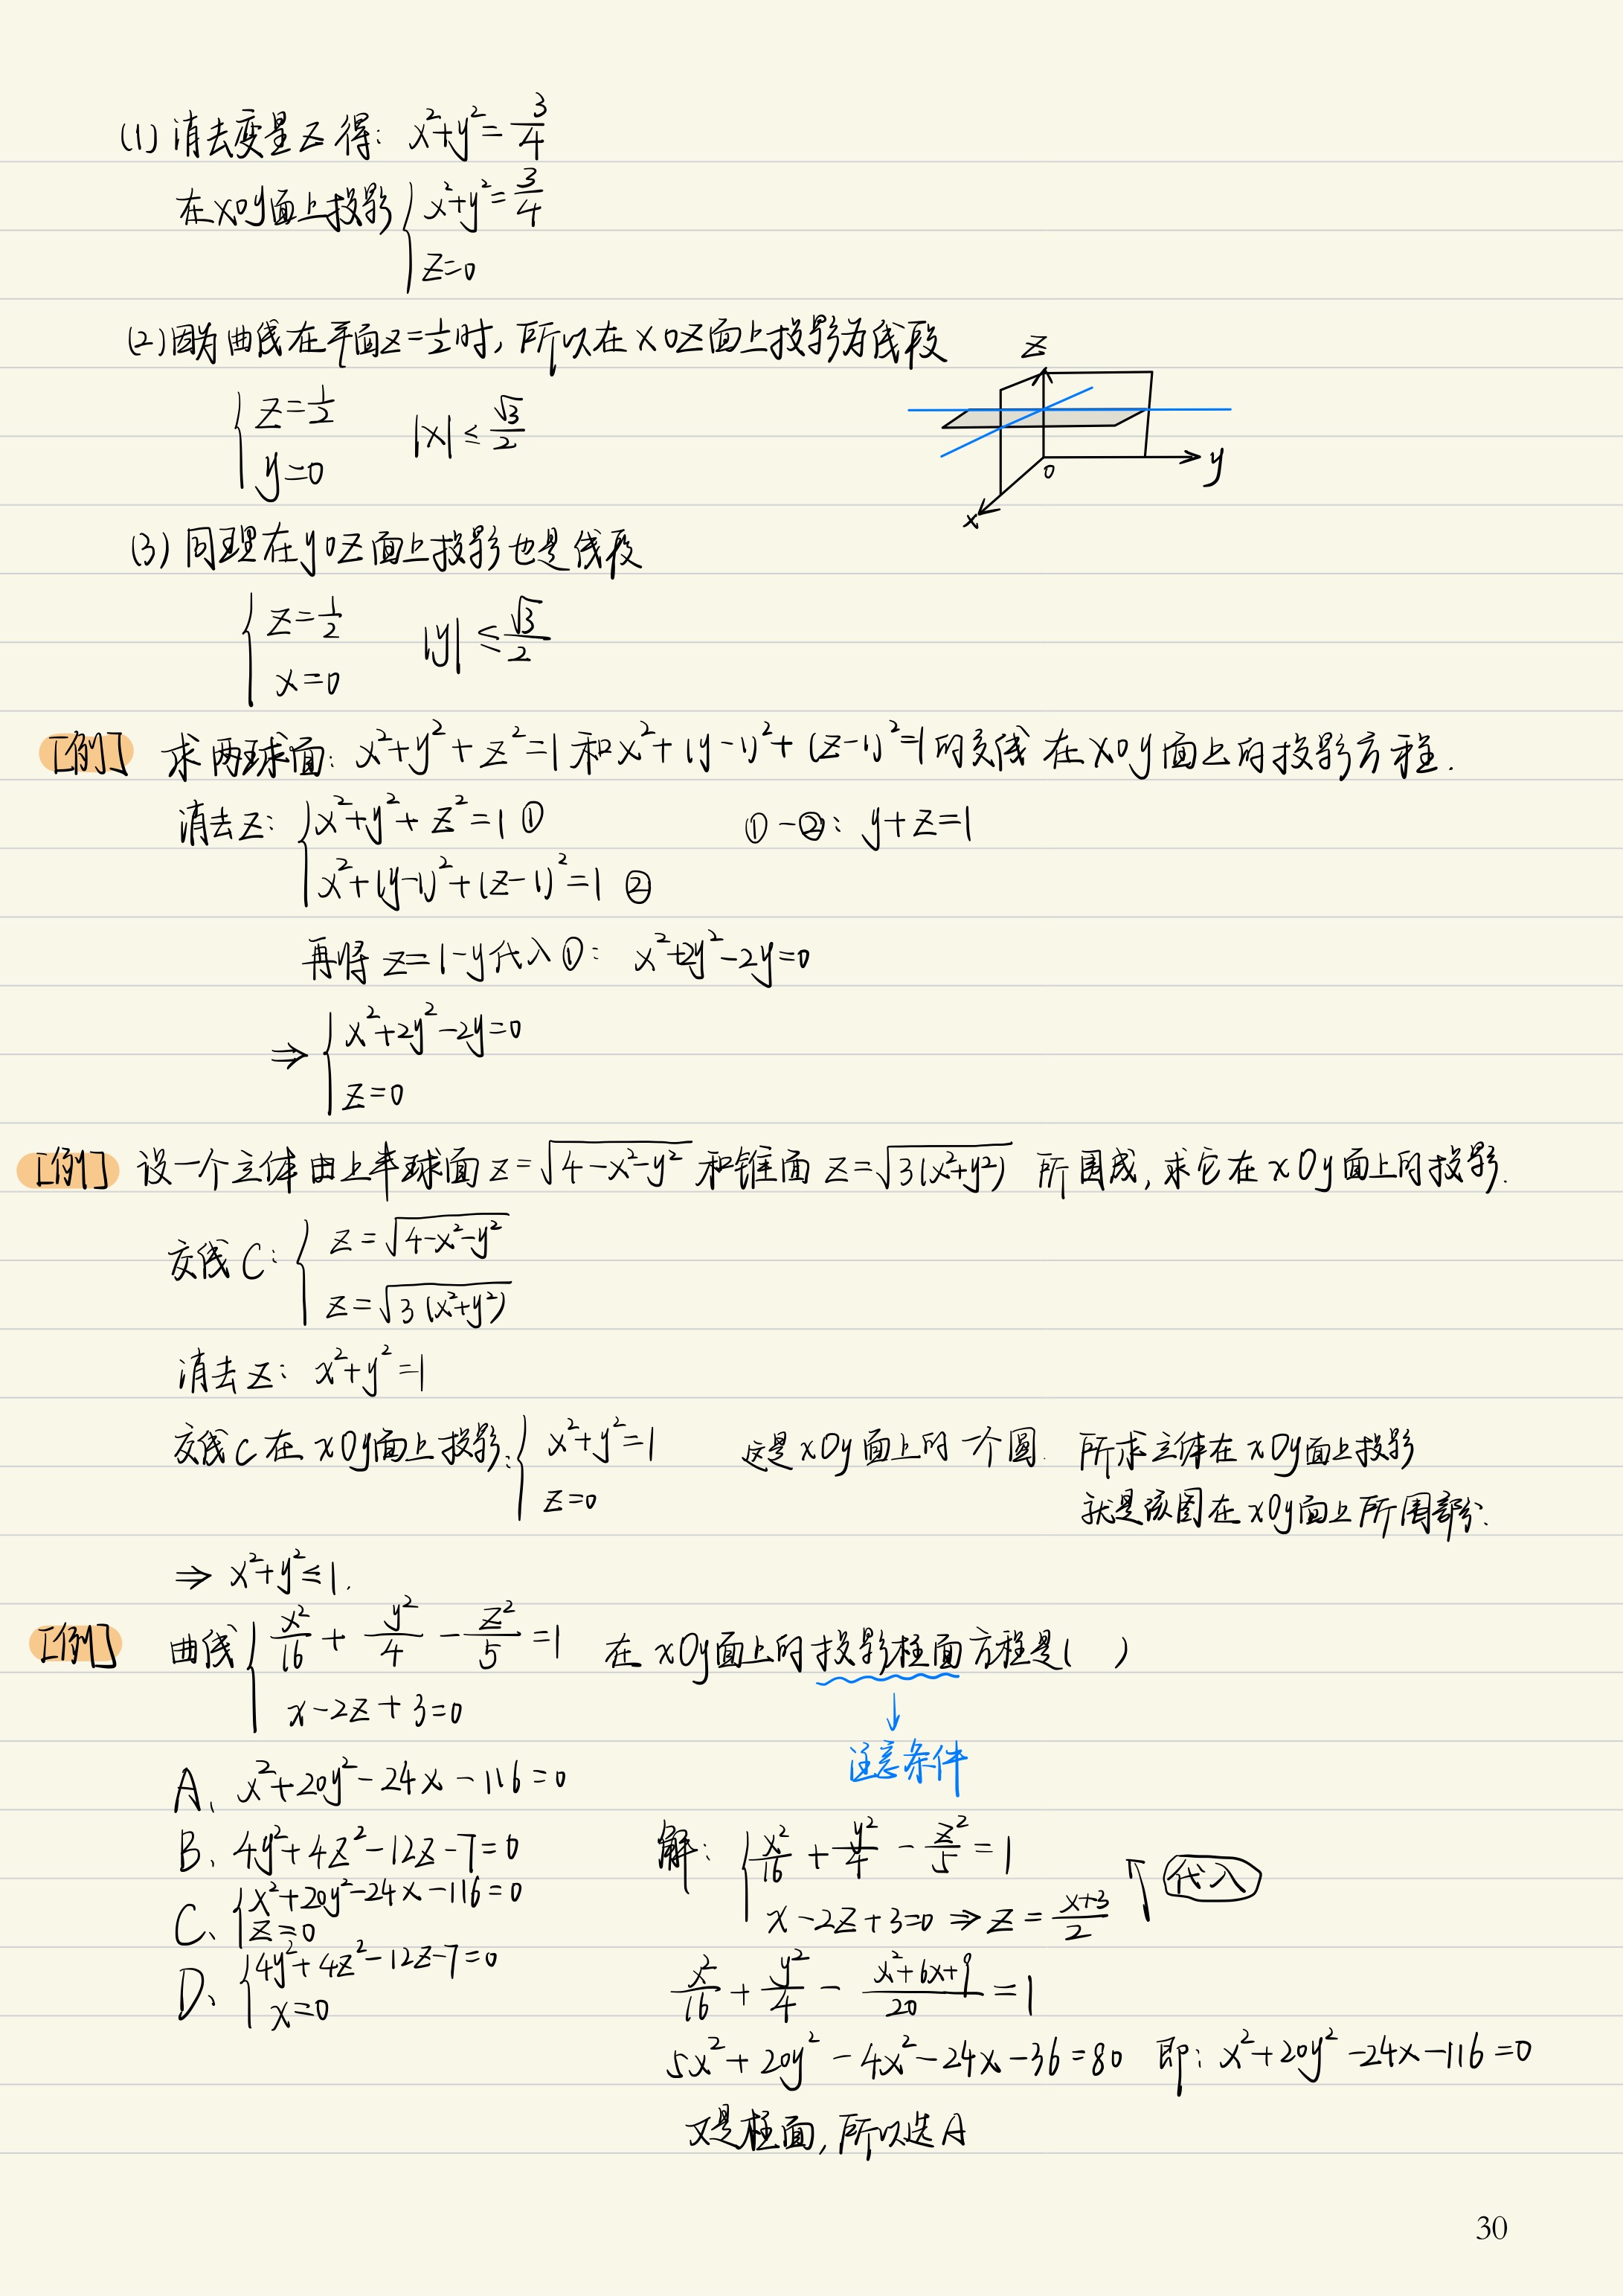 (1) 消去变量z得: x²+y²=3/4
在xoy面上投影 { x²+y²=3/4
z=0
(2) 因为曲线在平面z=1/2时, 所以在xoz面上投影为线段
z
{ z=1/2
y=0
|x| ≤ √3/2
y
o
x
(3) 同理在yoz面上投影也是线段
{ z=1/2
x=0
|y| ≤ √3/2
[例] 求两球面: x²+y²+z²=1 和 x²+(y-1)²+(z-1)²=1 的交线在xoy面上的投影方程.
消去z: { x²+y²+z²=1 ① ①-②: y+z=1
x²+(y-1)²+(z-1)²=1 ②
再将 z=1-y代入①: x²+2y²-2y=0
⇒ { x²+2y²-2y=0
z=0
[例] 设一个立体由上半球面 z=√(4-x²-y²) 和锥面 z=√(3(x²+y²)) 所围成, 求它在xOy面上的投影.
交线C: { z=√(4-x²-y²)
z=√(3(x²+y²))
消去z: x²+y²=1
交线C在xOy面上投影: { x²+y²=1 这是xOy面上的一个圆. 所求立体在xOy面上投影
z=0 就是该图在xOy面上所围部分.
⇒ x²+y²≤1.
[例] 曲线 { x²/16 + y²/4 - z²/5 =1 在xOy面上的投影柱面方程是( )
x-2z+3=0
注意条件
A、x²+20y²-24x-116=0
B、4y²+4z²-12z-7=0
C、{ x²+20y²-24x-116=0
z=0
D、{ 4y²+4z²-12z-7=0
x=0
解: { x²/16 + y²/4 - z²/5 =1
x-2z+3=0 ⇒ z=(x+3)/2 ↑ 代入
x²/16 + y²/4 - (x²+6x+9)/20 =1
5x²+20y²-4x²-24x-36=80 即: x²+20y²-24x-116=0
又是柱面, 所以选A
30